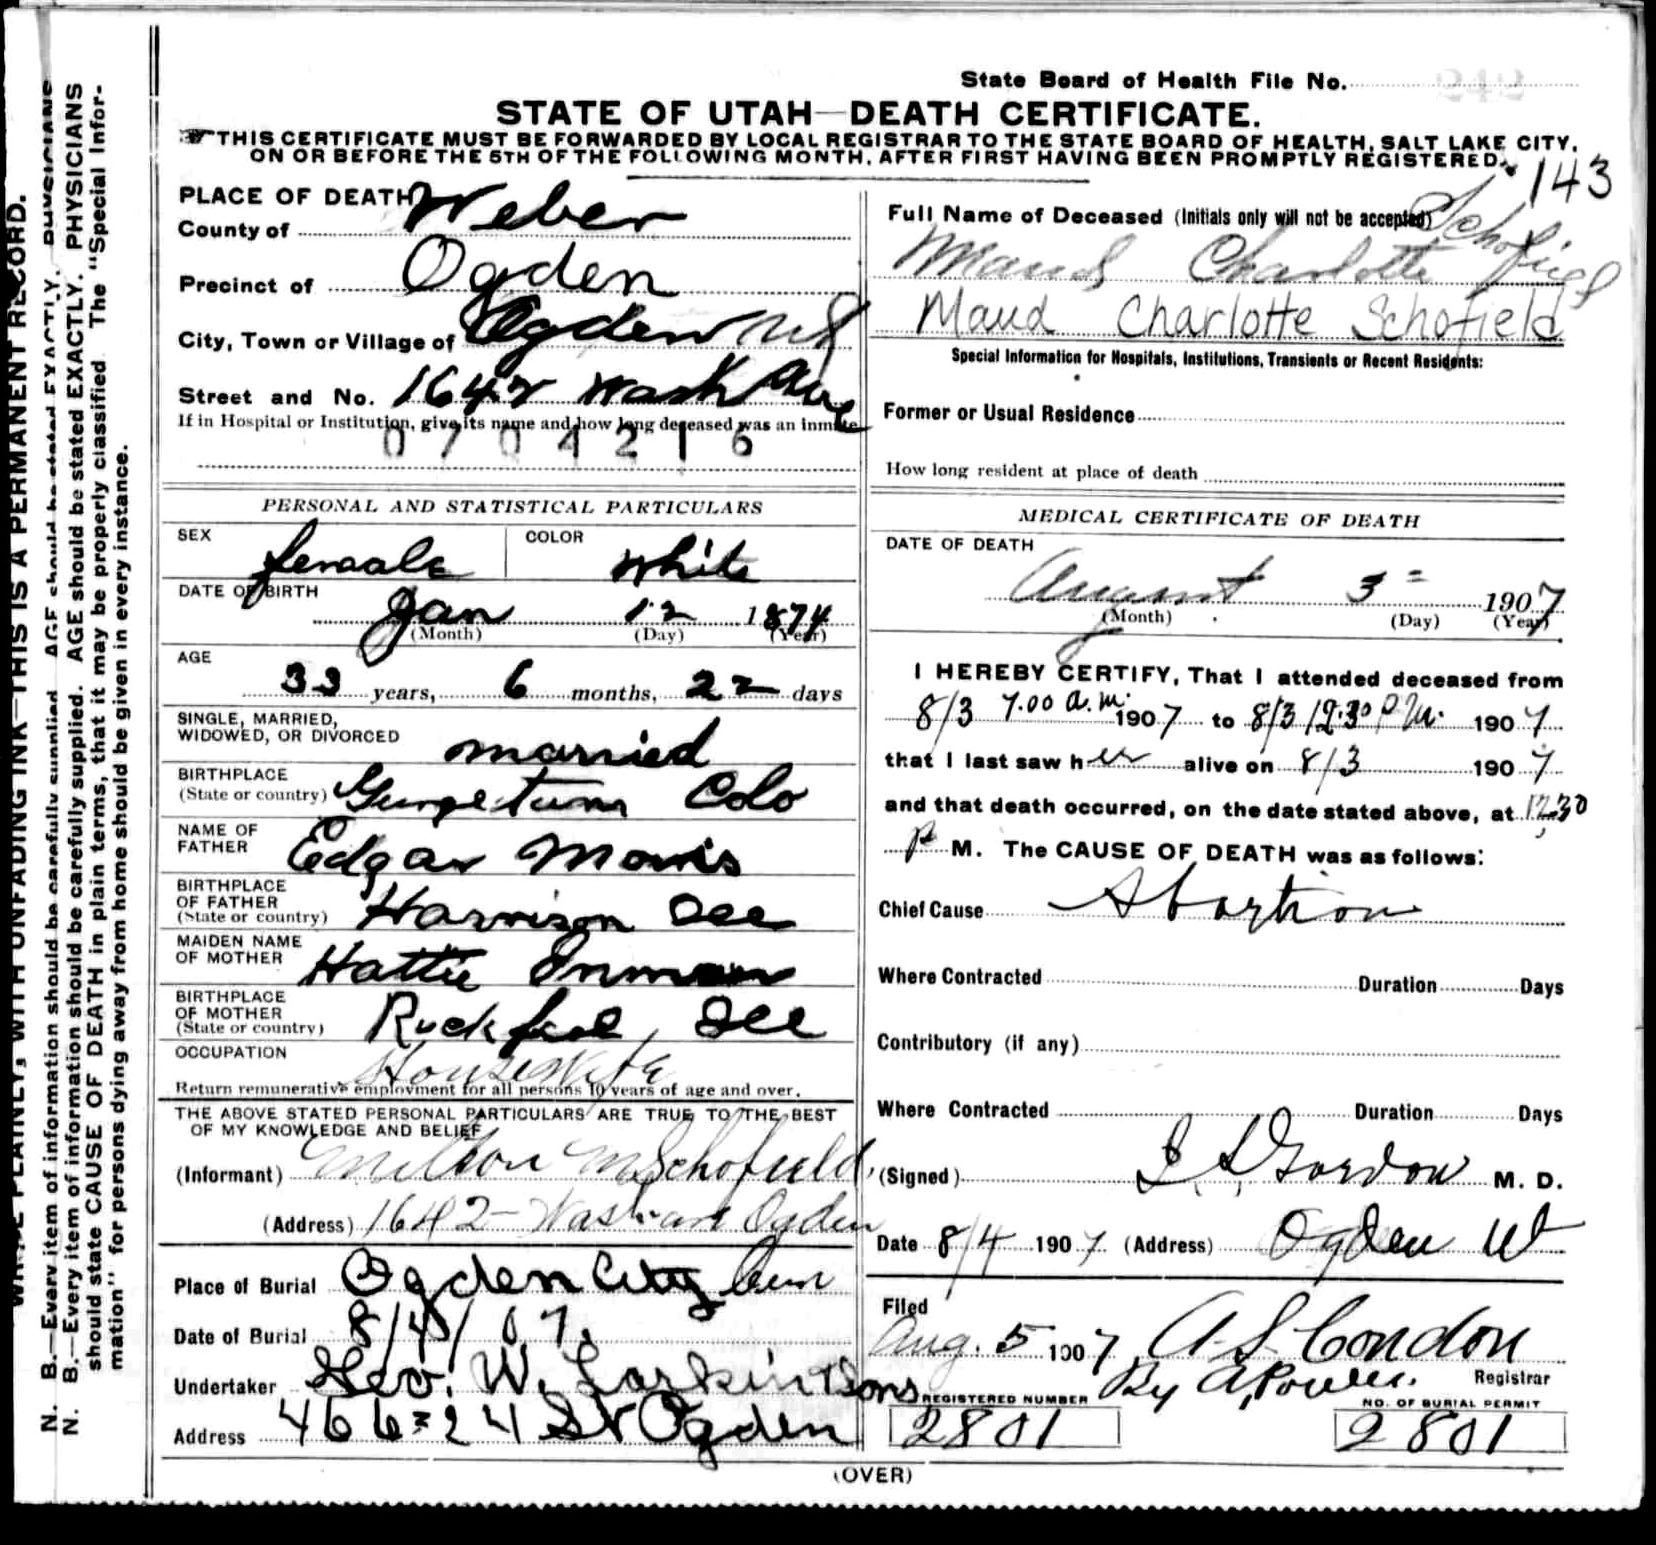 State Board of Health File No. 242
STATE OF UTAH—DEATH CERTIFICATE.
THIS CERTIFICATE MUST BE FORWARDED BY LOCAL REGISTRAR TO THE STATE BOARD OF HEALTH, SALT LAKE CITY,
ON OR BEFORE THE 5TH OF THE FOLLOWING MONTH, AFTER FIRST HAVING BEEN PROMPTLY REGISTERED.
143
PLACE OF DEATH
County of Weber
Precinct of Ogden
City, Town or Village of Ogden
Street and No. 1642 Wash Ave
If in Hospital or Institution, give its name and how long deceased was an inmate
0704216
PERSONAL AND STATISTICAL PARTICULARS
SEX female COLOR white
DATE OF BIRTH Jan 12 1874
(Month) (Day) (Year)
AGE
33 years, 6 months, 22 days
SINGLE, MARRIED,
WIDOWED, OR DIVORCED married
BIRTHPLACE
(State or country) Gurgetown Colo
NAME OF
FATHER Edgar Morris
BIRTHPLACE
OF FATHER
(State or country) Harrison Ill
MAIDEN NAME
OF MOTHER Hattie Inman
BIRTHPLACE
OF MOTHER
(State or country) Ill
OCCUPATION Housewife
Return remunerative employment for all persons 10 years of age and over.
THE ABOVE STATED PERSONAL PARTICULARS ARE TRUE TO THE BEST
OF MY KNOWLEDGE AND BELIEF
(Informant) Milton M Schofield
(Address) 1642 Wash ave Ogden
Place of Burial Ogden City Cem
Date of Burial 8/4/07.
Undertaker Geo. W. Larkin & Sons
Address 466=24 St Ogden
Full Name of Deceased (Initials only will not be accepted) Schofield
Maud Charlotte
Maud Charlotte Schofield
Special Information for Hospitals, Institutions, Transients or Recent Residents:
Former or Usual Residence
How long resident at place of death
MEDICAL CERTIFICATE OF DEATH
DATE OF DEATH
August 3 1907
(Month) (Day) (Year)
I HEREBY CERTIFY, That I attended deceased from
8/3 7.00 a.m. 1907 to 8/3 12.30 P.M. 1907
that I last saw her alive on 8/3 1907
and that death occurred, on the date stated above, at 12.30
P M. The CAUSE OF DEATH was as follows:
Chief Cause Abortion
Where Contracted Duration Days
Contributory (if any)
Where Contracted Duration Days
(Signed) Gordon M. D.
Date 8/4 1907 (Address) Ogden Ut
Filed
Aug. 5 1907 A S Condon
By A. Power. Registrar
REGISTERED NUMBER 2801
NO. OF BURIAL PERMIT 2801
(OVER)
WRITE PLAINLY, WITH UNFADING INK—THIS IS A PERMANENT RECORD.
N. B.—Every item of information should be carefully supplied. AGE should be stated EXACTLY. PHYSICIANS
N. B.—Every item of information should be carefully supplied. AGE should be stated EXACTLY. PHYSICIANS
should state CAUSE OF DEATH in plain terms, that it may be properly classified. The "Special Infor-
mation" for persons dying away from home should be given in every instance.